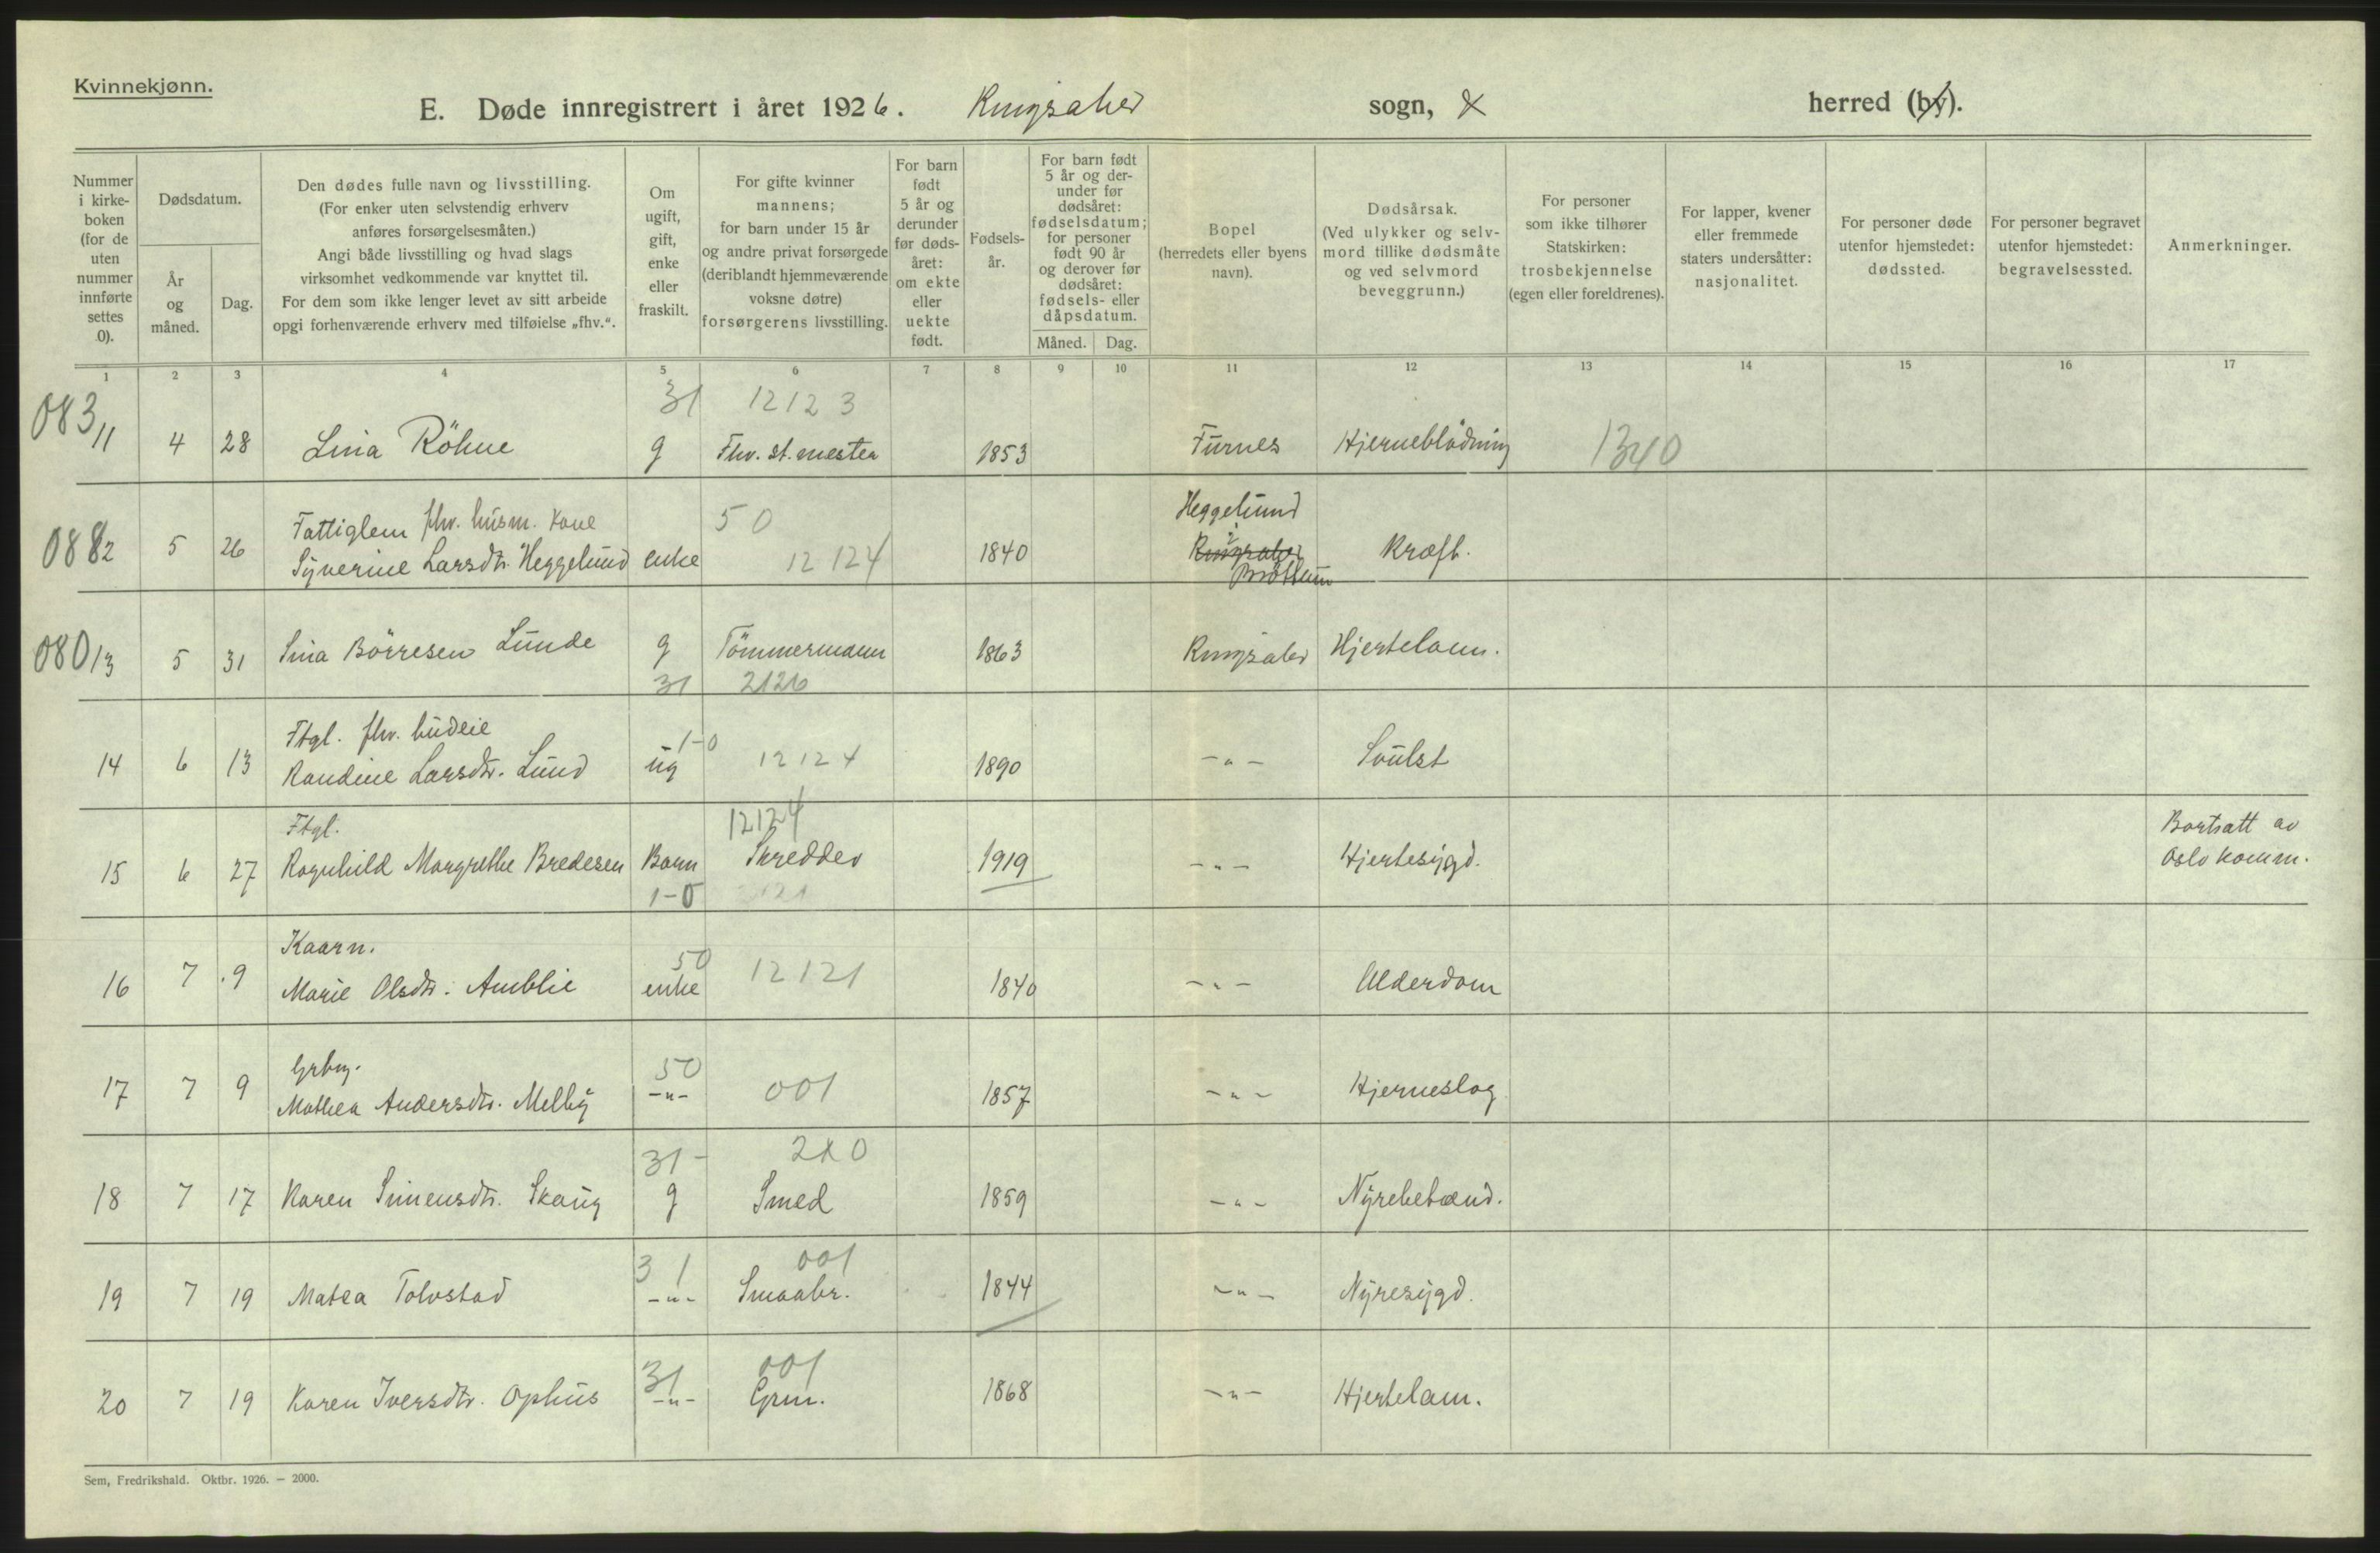 Kvinnekjønn.
E. Døde innregistrert i året 1926. Ringsaker sogn, herred (by).
Nummer i kirke-boken (for de uten nummer innførte settes 0).
Dødsdatum.
År og måned.
Dag.
Den dødes fulle navn og livsstilling.
(For enker uten selvstendig erhverv
anføres forsørgelsesmåten.)
Angi både livsstilling og hvad slags
virksomhet vedkommende var knyttet til.
For dem som ikke lenger levet av sitt arbeide
opgi forhenværende erhverv med tilføielse „fhv.“.
Om
ugift,
gift,
enke
eller
fraskilt.
For gifte kvinner
mannens;
for barn under 15 år
og andre privat forsørgede
(deriblandt hjemmeværende
voksne døtre)
forsørgerens livsstilling.
For barn
født
5 år og
derunder
før døds-
året:
om ekte
eller
uekte
født.
Fødsels-
år.
For barn født
5 år og der-
under før
dødsåret:
fødselsdatum;
for personer
født 90 år
og derover før
dødsåret:
fødsels- eller
dåpsdatum.
Måned. Dag.
Bopel
(herredets eller byens
navn).
Dødsårsak.
(Ved ulykker og selv-
mord tillike dødsmåte
og ved selvmord
beveggrunn.)
For personer
som ikke tilhører
Statskirken:
trosbekjennelse
(egen eller foreldrenes).
For lapper, kvener
eller fremmede
staters undersåtter:
nasjonalitet.
For personer døde
utenfor hjemstedet:
dødssted.
For personer begravet
utenfor hjemstedet:
begravelsessted.
Anmerkninger.
1 2 3 4 5 6 7 8 9 10 11 12 13 14 15 16 17
083 31 12123
11 4 28 Lina Röhne g Fhv. st. mester 1853 Furnes Hjerneblödning 1340
Fattiglem fhv. husm. kone 50 Heggelund
0882 5 26 Syverine Larsdtr. Heggelund enke 12124 1840 Ringsaker Kræft.
Brøttum
080 13 5 31 Sina Börresen Lunde g Tömmermann 1863 Ringsaker Hjertelam.
31 2126
Ftgl. fhv. budeie 1-0
14 6 13 Randine Larsdtr. Lund ug 12124 1890 -"- Svulst
Ftgl. 12124 Bortsatt av
15 6 27 Ragnhild Margrethe Bredesen Barn Skredder 1919 -"- Hjertesygd. Oslo komm.
1-0 2121
Kaarn. 50
16 7 9 Marie Olsdtr. Amblie enke 12121 1840 -"- Alderdom
Grbr. 50
17 7 9 Mathea Andersdtr. Melby -"- 001 1857 -"- Hjerneslag
31- 210
18 7 17 Karen Simensdtr. Skaug g Smed 1859 -"- Nyrebetænd.
31 001
19 7 19 Matea Tolvstad -"- Smaabr. 1844 -"- Nyresygd.
31 001
20 7 19 Karen Iversdtr. Ophus -"- Grm. 1868 -"- Hjertelam.
Sem, Fredrikshald. Oktbr. 1926. — 2000.